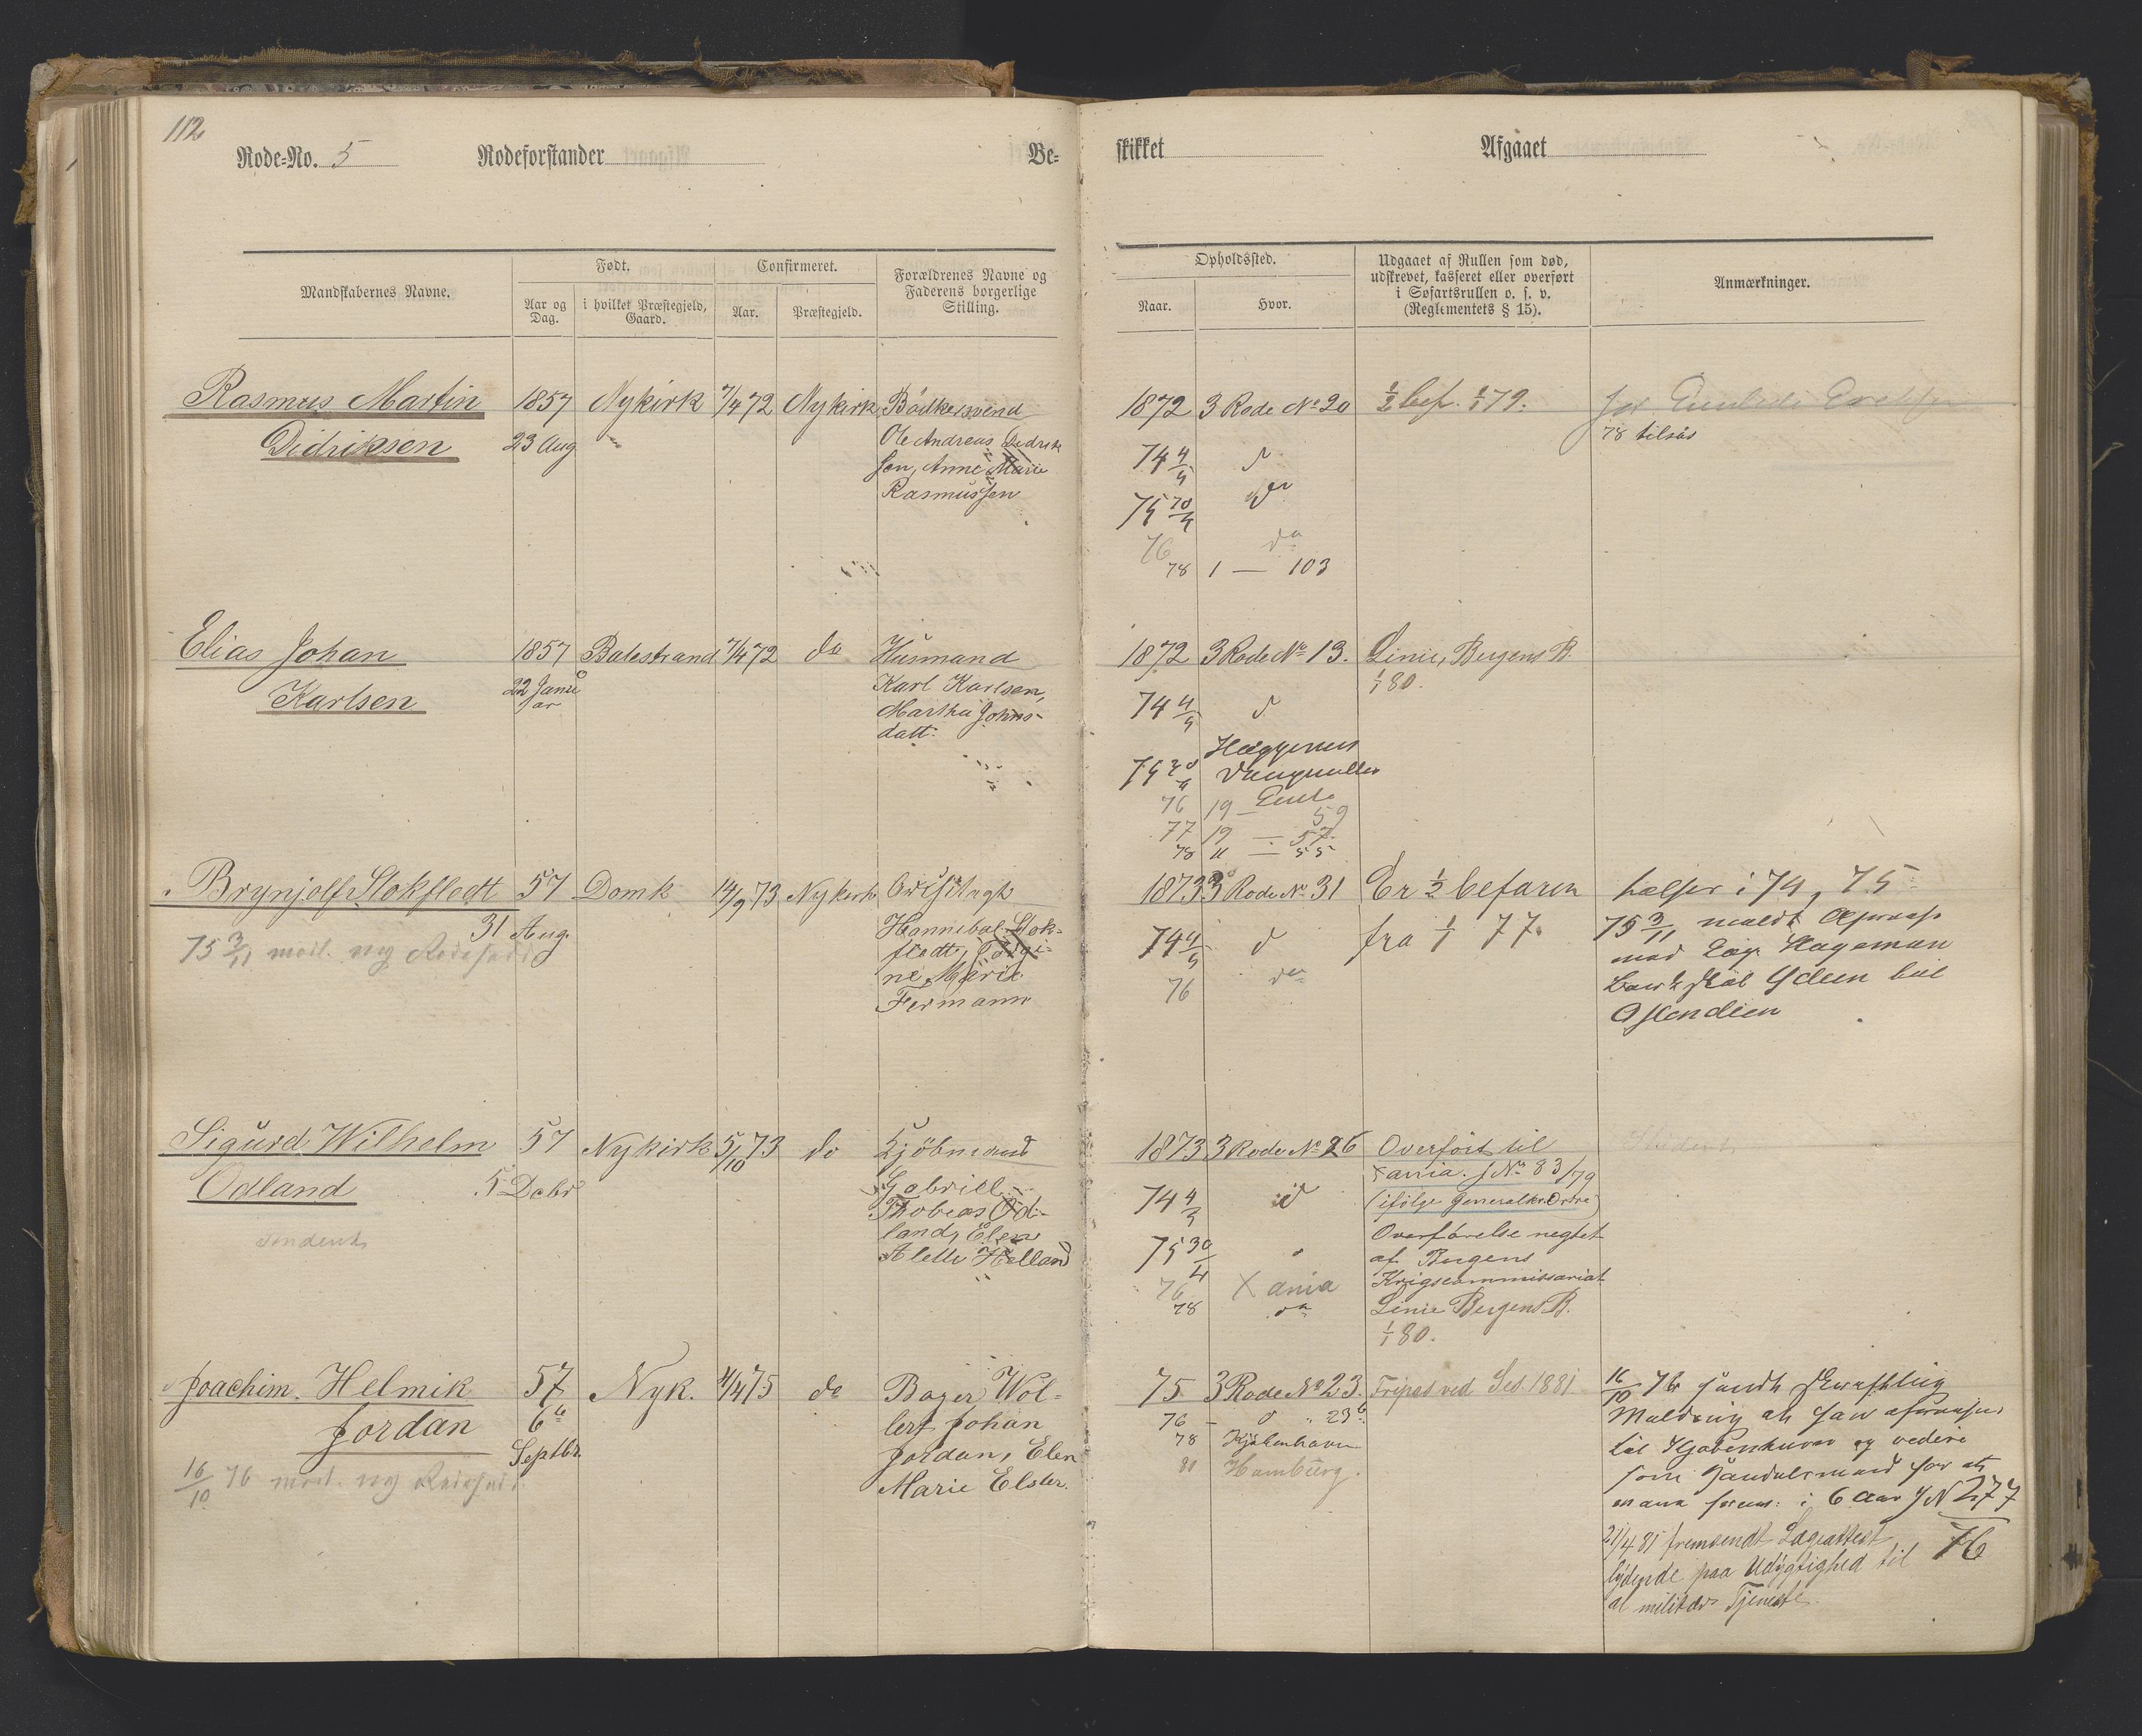 112
Rode=No. 5 Rodeforstander Be=
skikket Afgaaet
Mandskabernes Navne.
Født.
Aar og Dag.
i hvilket Præstegjeld, Gaard.
Confirmeret.
Aar.
Præstegjeld.
Forældrenes Navne og
Faderens borgerlige
Stilling.
Opholdssted.
Naar.
Hvor.
Udgaaet af Rullen som død,
udskrevet, kasseret eller overført
i Søfartsrullen o. s. v.
(Reglementets § 15).
Anmærkninger.
Rasmus Martin 1857 Nykirk 7/4 72 Nykirk Bödkersvend
Didriksen 23 Aug
Ole Andreas Didrik
sen, Anne Marie
Rasmussen
1872 3 Rode No 20 1/2 bef. 1/1 79.
78 tilsøs
74 4/4
75
76 do
78 1 — 103
Elias Johan 1857 Balestrand 7/4 72 do Husmand
Karlsen 22 Janu
ar
Karl Karlsen,
Martha Johns-
datt:
1872 3 Rode No 13. Linie, Bergens B.
1/1 80.
74 4/4
76 19 — 59
77 19 — 57
78 11 — 55
Brynjolf Stokfledt 57 Domk 14/9 73 Nykirk
31 Aug.
75 3/11 ny
Hannibal Stok-
fledt,
ne Marie
Fermann
1873 3 Rode No 31 Er 1/2 befaren i 74, 75
74 4/4 fra 1/1 77.
76 do
75 3/11 meldt
med Hageman
Sigurd Wilhelm 57 Nykirk 5/10 73 do Kjöbmand
Odland 5 Debr
Student
Gabriel
Thobias Od-
land, Elen
Alette Helland
1873 3 Rode No 26 Overført til Student
Xania. J No 83/79
74 4/4 (ifølge Generalkr. Ordre)
Overførelse negtet
75 30/4 af Bergens
76 X ania Krigscommissariat
78 do Linie Bergens B.
1/1 80.
Joachim Helmik 57 Nyk. 4/4 75 do Bager Wol-
Jordan 6te
Septbr.
16/10 76 ny
lert Johan
Jordan, Elen
Marie Elster.
75 3 Rode No 23. Fripas ved Ses. 1881
76 - 23b
78 Kjøbenhavn
81 Hamburg.
16/10 76 sendt skriftlig
Melding at han
til Kjøbenhavn og videre
som Handelsmand for at
i 6 Aar J N 277
76
21/4 81 fremsendt Lægeattest
lydende paa Udygtighed til
al militær Tjeneste.